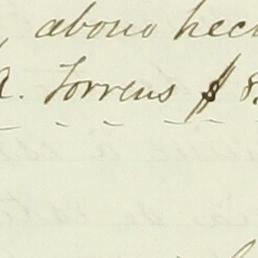 , abono hec
A. Torrens $ 8